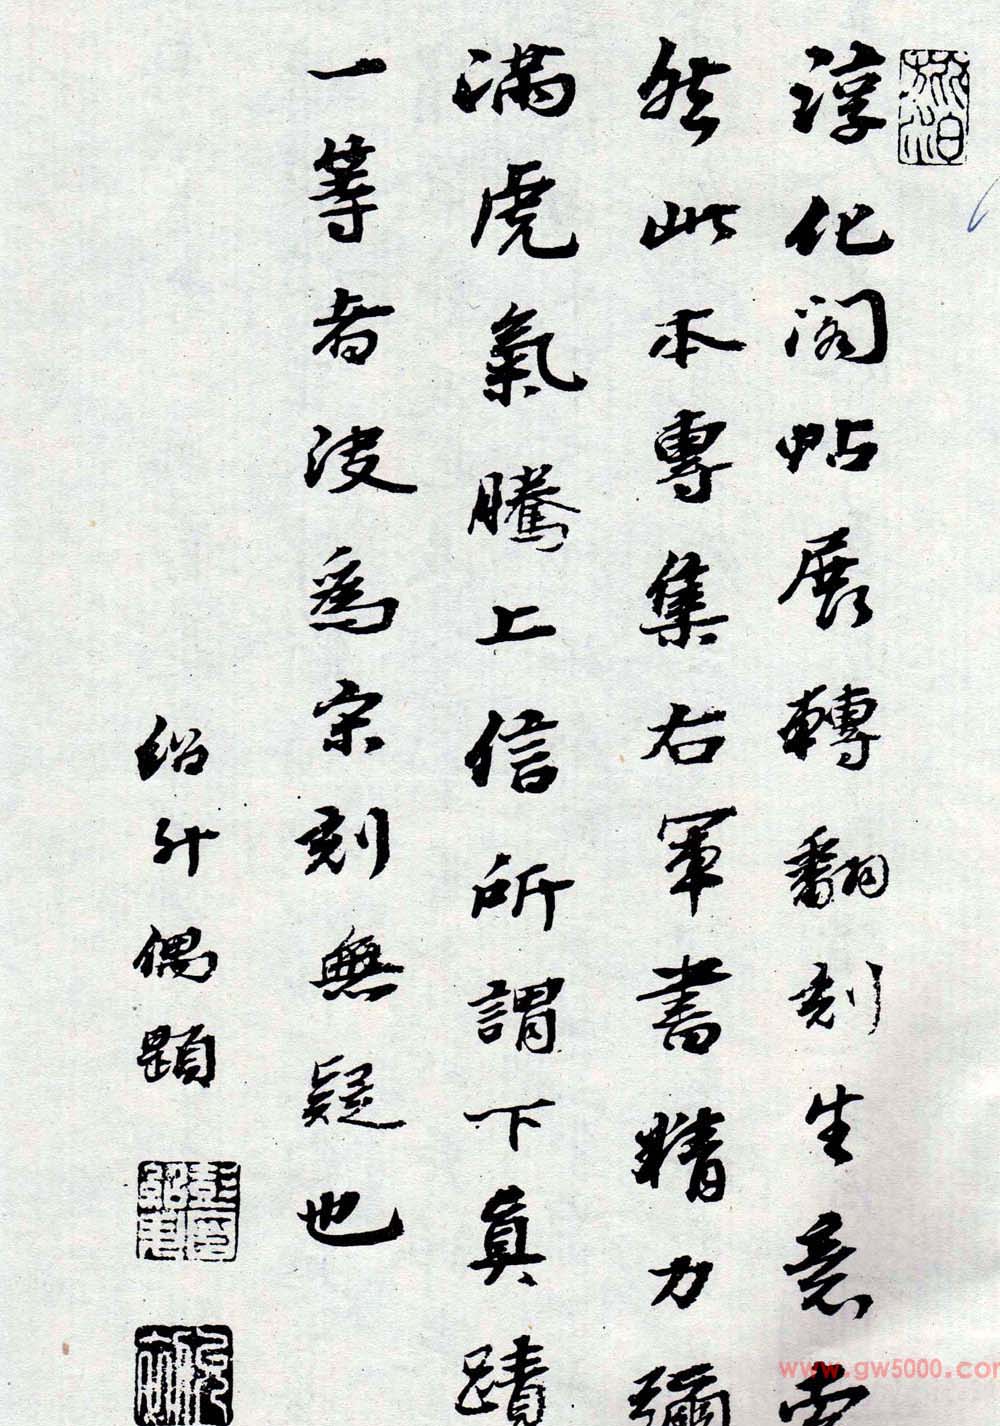 淳化閣帖展轉翻刻生意索
然此本專集右軍書精力彌
滿虎氣騰上信所謂下真蹟
一等者決為宋刻無疑也
紹升偶題
www.gw5000.com